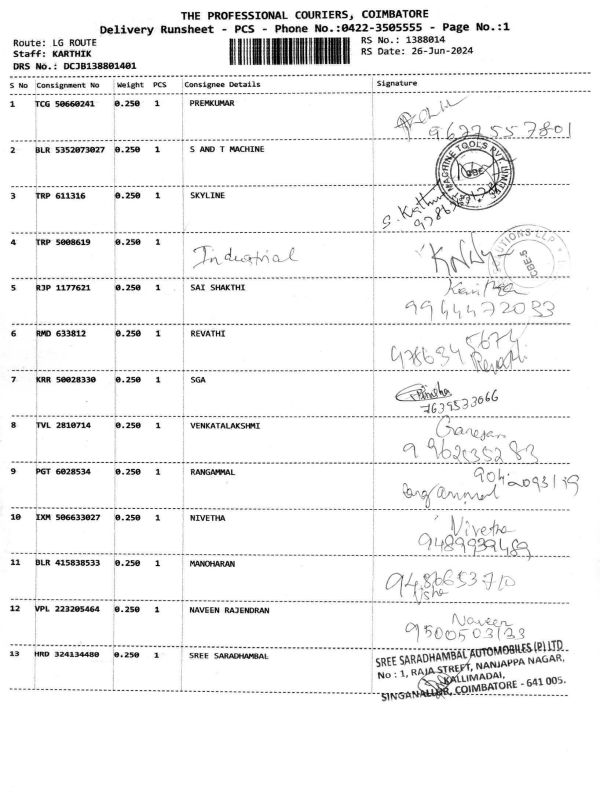 THE PROFESSIONAL COURIERS, COIMBATORE
Delivery Runsheet - PCS - Phone No.:0422-3505555 - Page No.:1
Route: LG ROUTE
Staff: KARTHIK
DRS No.: DCJB138801401
RS No.: 1388014
RS Date: 26-Jun-2024
S No Consignment No Weight PCS Consignee Details Signature
1 TCG 50660241 0.250 1 PREMKUMAR
9627557801
2 BLR 5352073027 0.250 1 S AND T MACHINE
3 TRP 611316 0.250 1 SKYLINE
4 TRP 5008619 0.250 1 Industrial
5 RJP 1177621 0.250 1 SAI SHAKTHI
9944472033
6 RMD 633812 0.250 1 REVATHI
Revathi
7 KRR 50028330 0.250 1 SGA
7639533066
8 TVL 2810714 0.250 1 VENKATALAKSHMI
Ganesan
9962035283
9 PGT 6028534 0.250 1 RANGAMMAL
Rangammal
10 IXM 506633027 0.250 1 NIVETHA
Nivetha
9489939489
11 BLR 415838533 0.250 1 MANOHARAN
9486653710
12 VPL 223205464 0.250 1 NAVEEN RAJENDRAN
Naveen
9500503133
13 HRD 324134480 0.250 1 SREE SARADHAMBAL
SREE SARADHAMBAL AUTOMOBILES (P) LTD
No : 1, RAJA STREET, NANJAPPA NAGAR,
KALLIMADAI,
SINGANALLUR, COIMBATORE - 641 005.